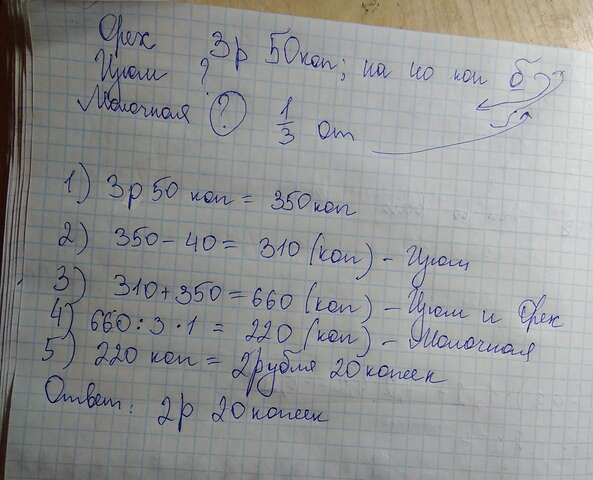 Орех 3р 50коп; на 40 коп б
Изюм ?
Молочная ? 1/3 от
1) 3р 50 коп = 350коп
2) 350-40 = 310 (коп) - Изюм
3) 310+350=660 (коп) - Изюм и Орех
4) 660:3·1 = 220 (коп) - Молочная
5) 220 коп = 2рубля 20копеек
Ответ: 2р 20копеек